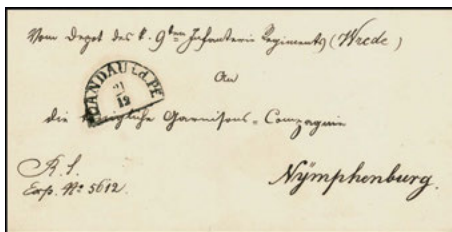 Vom Depot des k. 9ten Infanterie Regiments (Wrede)
An
LANDAU i.d. PF.
21
12
die Königliche Garnisons=Compagnie
R. S.
Exp. No 5612.
Nÿmphenburg.